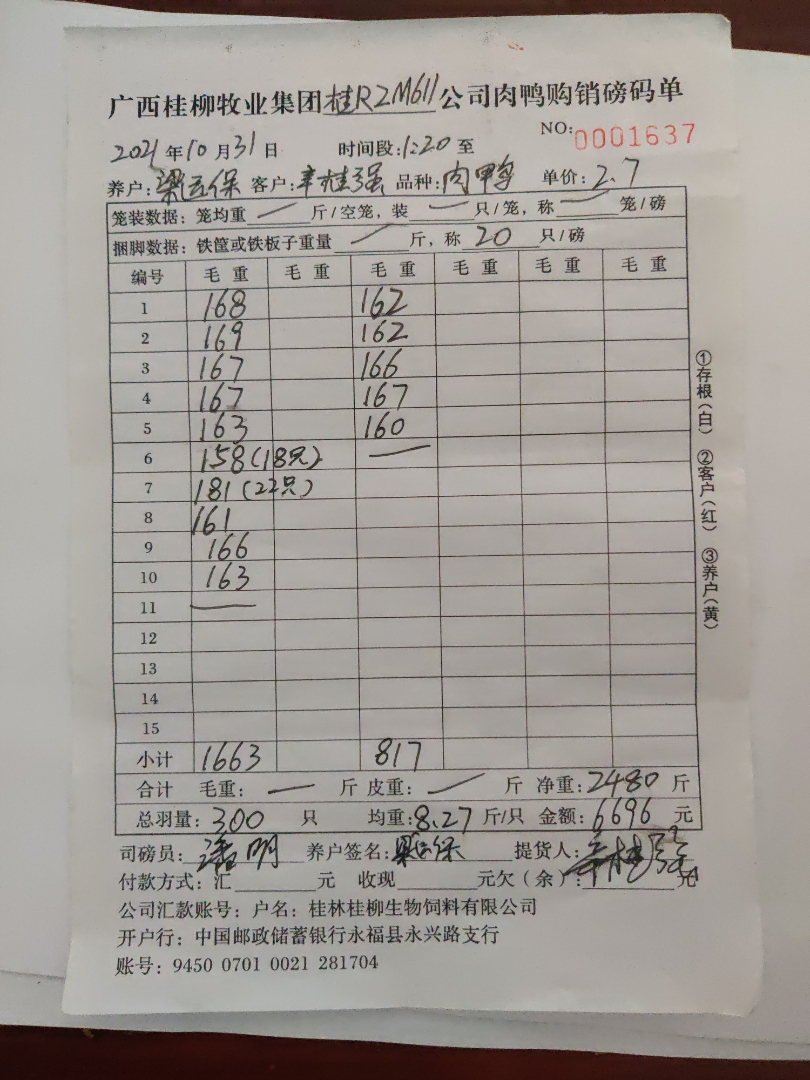 广西桂柳牧业集团桂R2M611公司肉鸭购销磅码单
NO:0001637
2021年10月31日 时间段:1:20至
养户:梁 保 客户:辛桂强 品种:肉鸭 单价:2.7
笼装数据:笼均重 — 斤/空笼,装 — 只/笼,称 — 笼/磅
捆脚数据:铁筐或铁板子重量 — 斤,称 20 只/磅
编号 毛重 毛重 毛重 毛重 毛重 毛重
1 168 162
2 169 162
3 167 166
4 167 167
5 163 160
6 158(18只) —
7 181(22只)
8 161
9 166
10 163
11 —
12
13
14
15
小计 1663 817
合计 毛重: — 斤 皮重: — 斤 净重:2480 斤
总羽量:300 只 均重:8.27 斤/只 金额:6696 元
司磅员:潘明 养户签名:梁 保 提货人:辛桂强
付款方式:汇 元 收现 元欠(余): 元
公司汇款账号:户名:桂林桂柳生物饲料有限公司
开户行:中国邮政储蓄银行永福县永兴路支行
账号:9450 0701 0021 281704
①存根(白) ②客户(红) ③养户(黄)